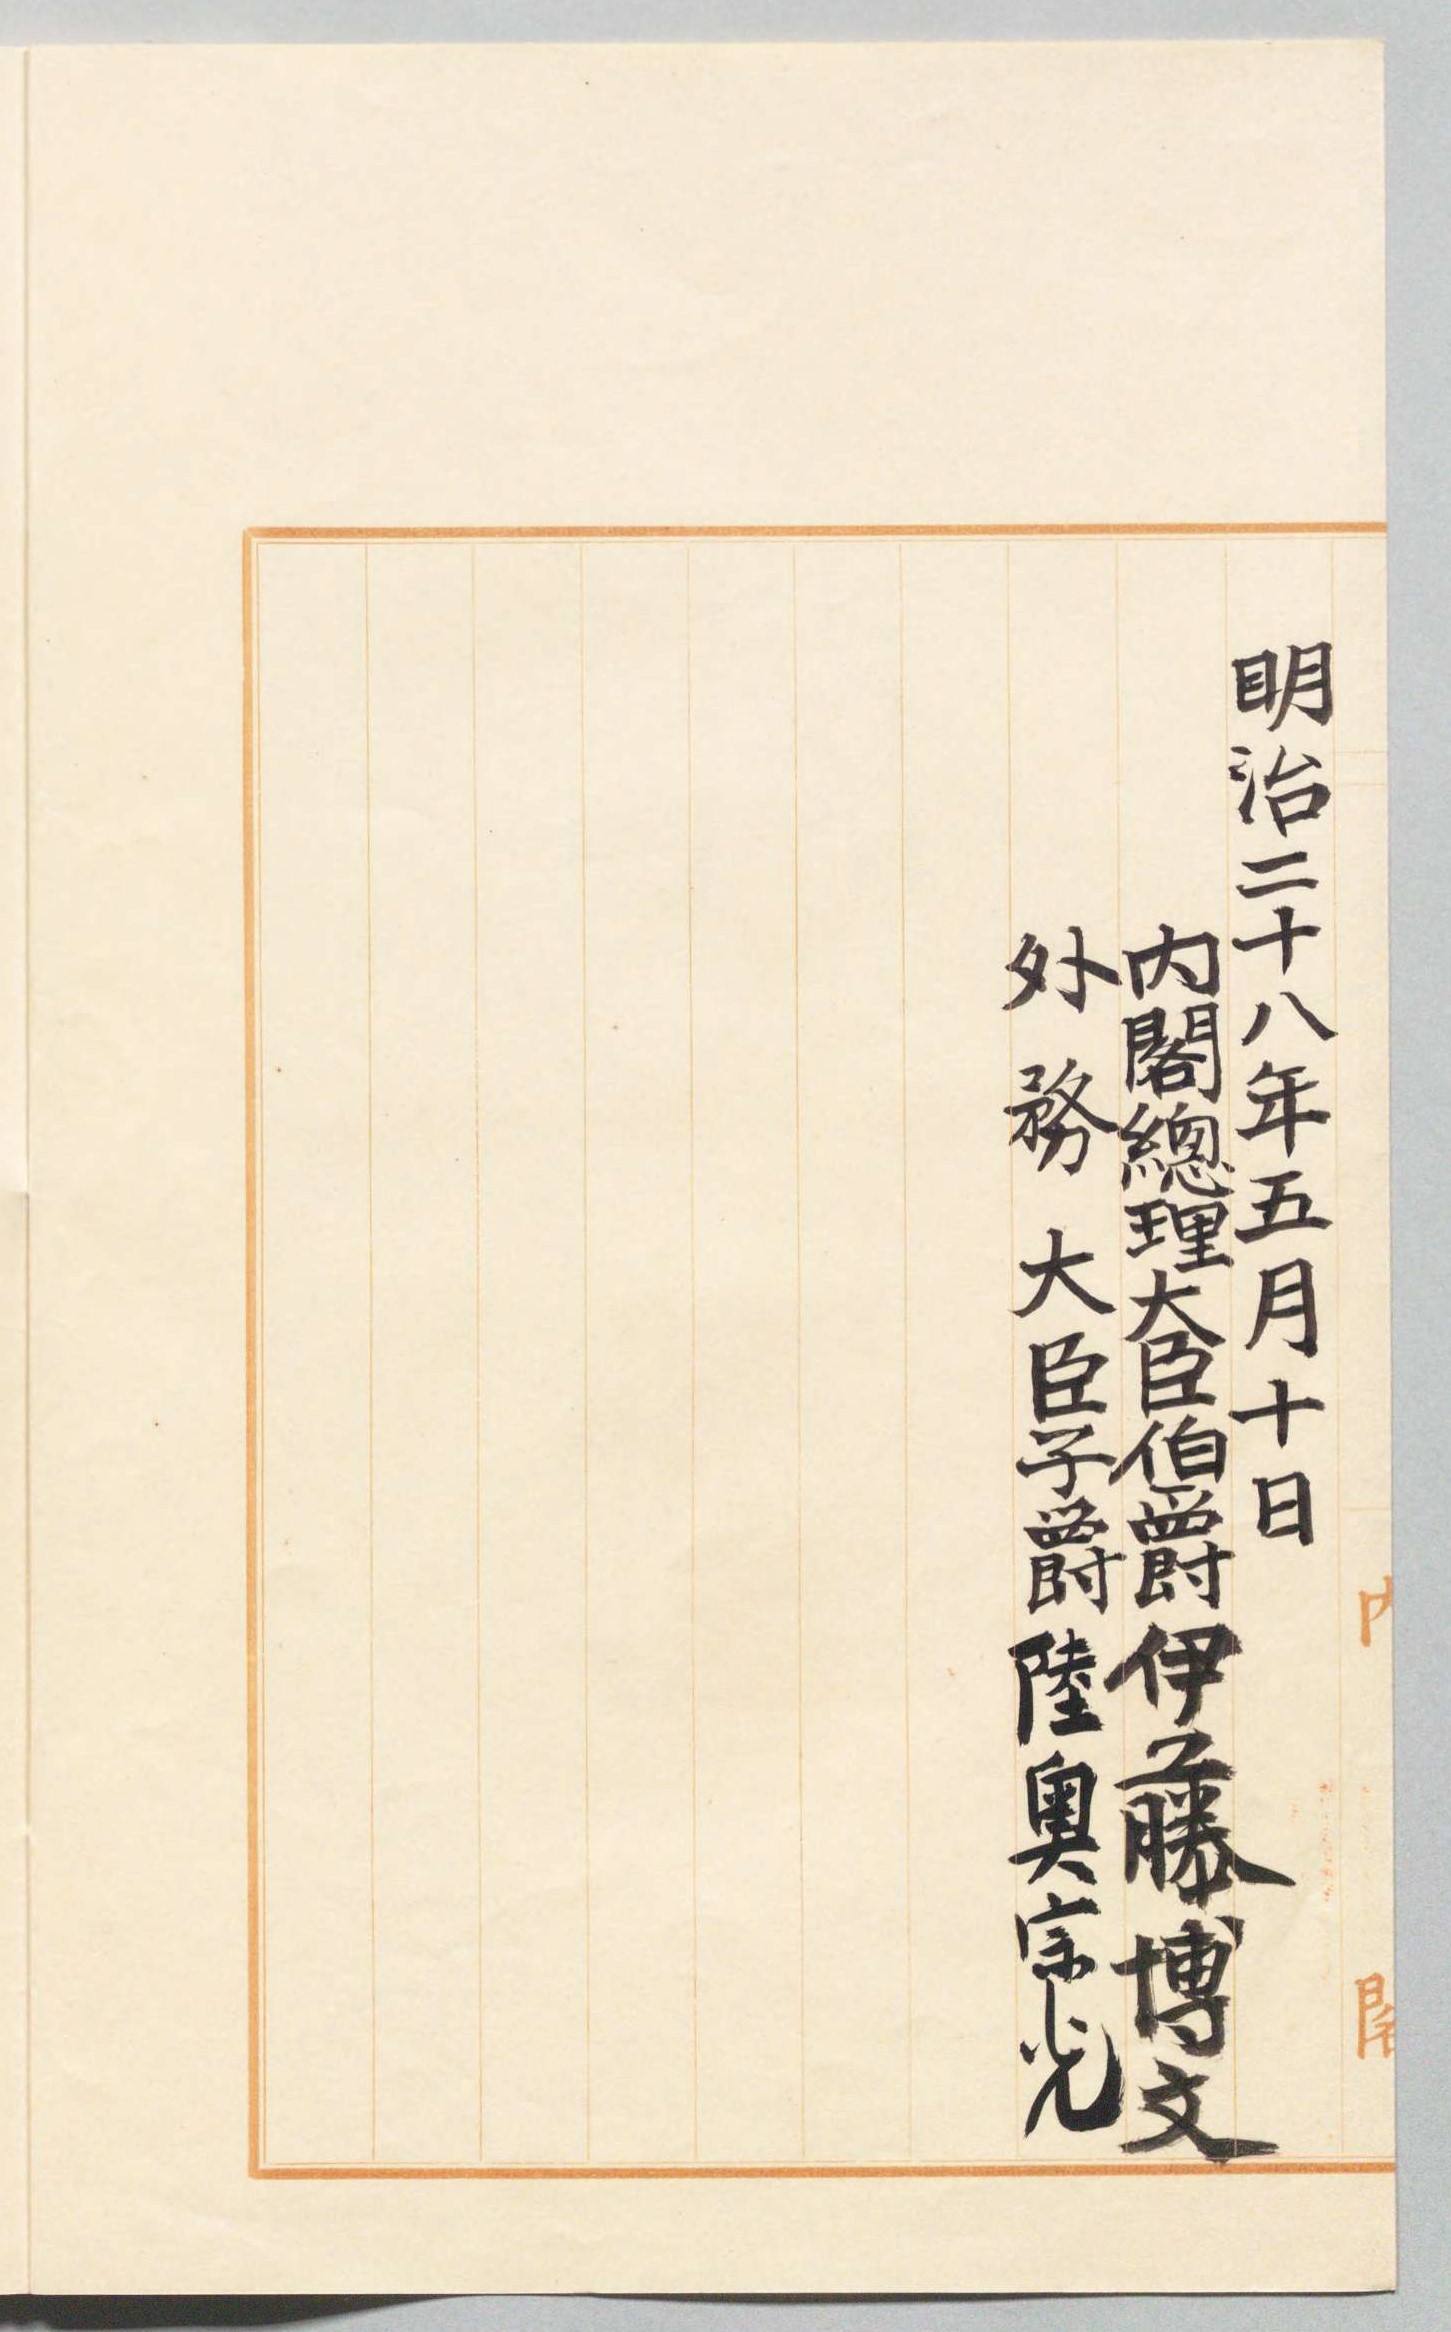 明治二十八年五月十日
内閣總理大臣伯爵伊藤博文
外務大臣子爵陸奥宗光
内